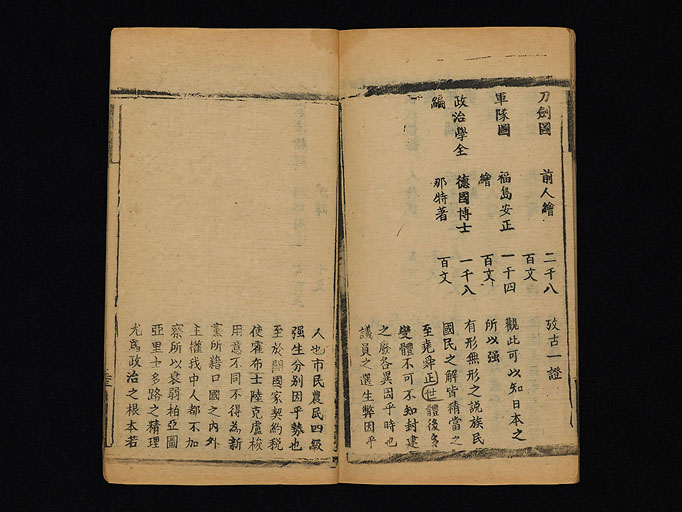 刀劍圖 前人繪 二千八 攷古一證
百文
軍隊圖 福島安正 一千四 觀此可以知日本之
繪 百文 所以强
政治學全 德國博士 一千八 有形無形之說族民
編 那特著 百文 國民之解皆精當之
至堯舜正世體後多
變體不可不知封建
之廢各異因乎時也
議員之選生弊因乎
人也市民農民四級
强生分别因乎勢也
至於闢國家契約税
使霍布士陸克盧梭
用意不同不得爲新
黨所藉口國之内外
主權我中人都不加
察所以衰弱柏亞圖
亞里士多路之精理
尤爲政治之根本若